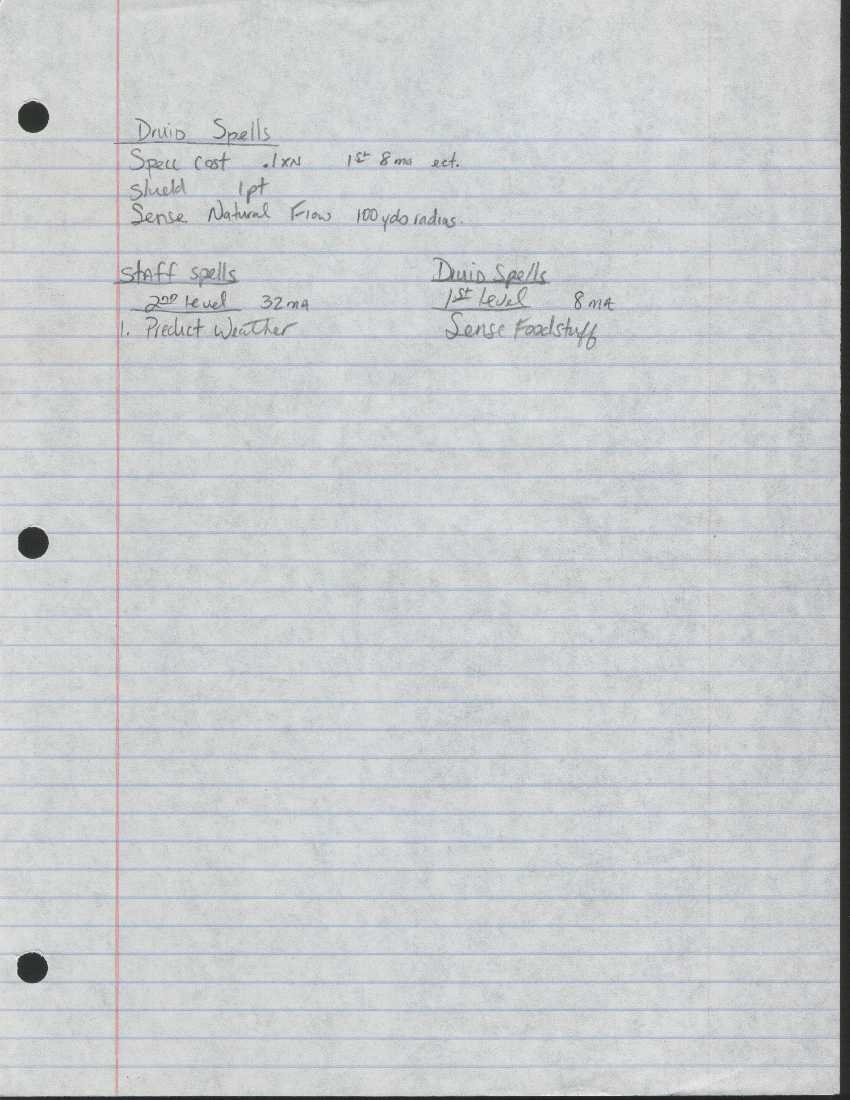 Druid Spells
Spell Cost .1xN 1st 8 ma ect.
Shield 1pt
Sense Natural Flow 100 yds radius.
Staff Spells
2nd Level 32 ma
1. Predict Weather
Druid Spells
1st Level 8 ma
Sense Foodstuff